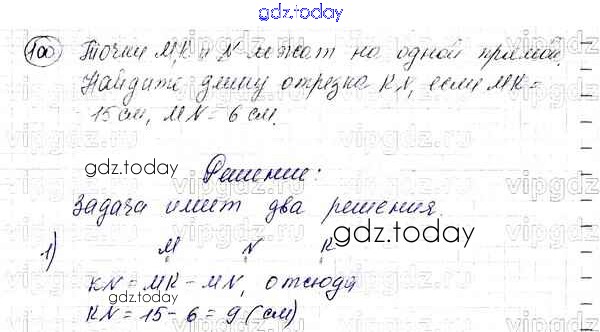 gdz.today
100 Точки М, К и N лежат на одной прямой.
Найдите длину отрезка KN, если МК =
15 см, MN = 6 см.
gdz.today
Решение:
Задача имеет два решения
1) M N K
gdz.today
KN = MK - MN, отсюда
gdz.today
KN = 15 - 6 = 9 (см)